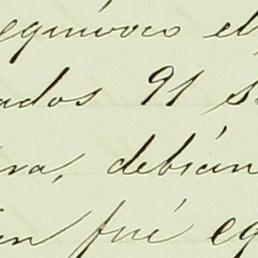 equívoco el
ados 91 s
ra, debian
fué eq